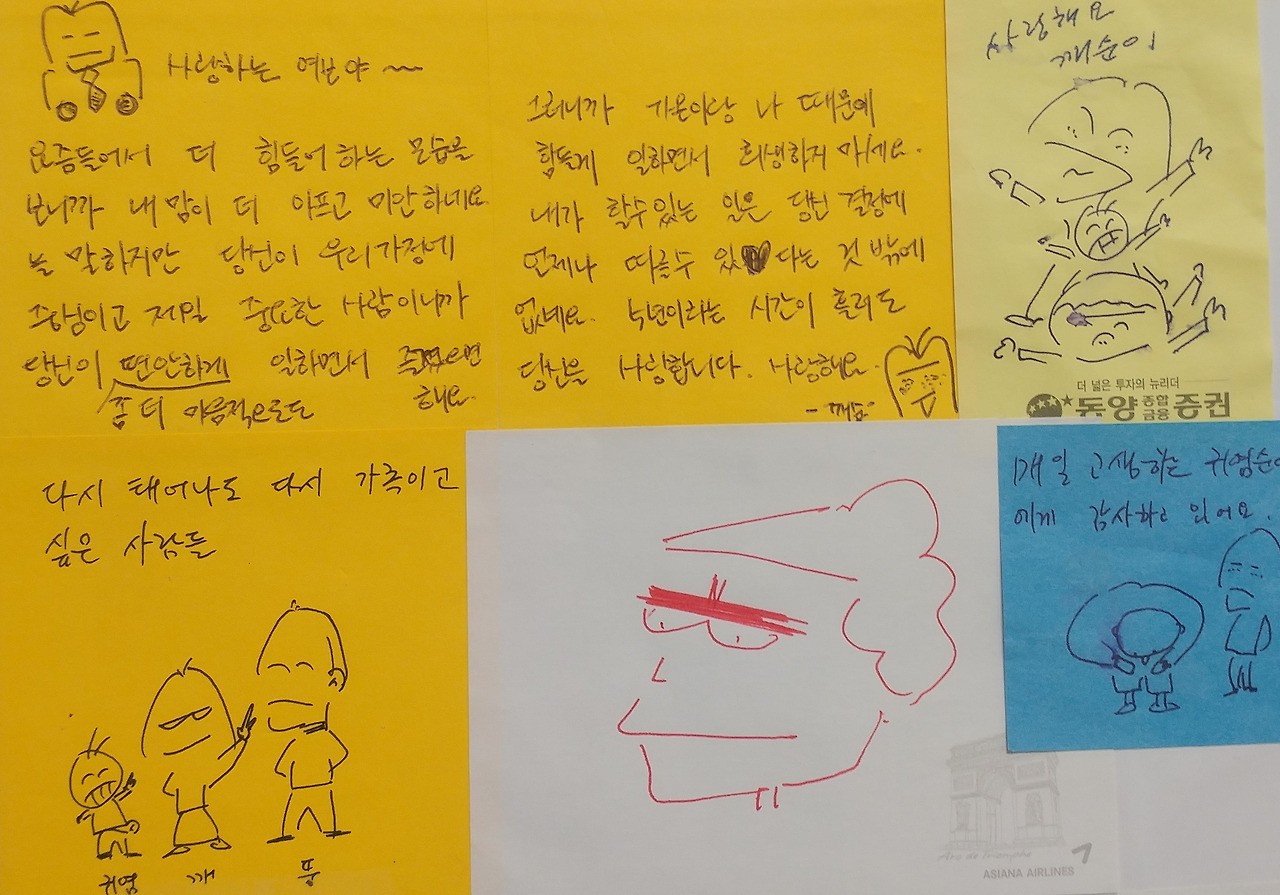 사랑하는 여보야~
요즘들어서 더 힘들어하는 모습을
보니까 내 맘이 더 아프고 미안하네요
늘 말하지만 당신이 우리가정에
주님이고 제일 중요한 사람이니까
당신이 편안하게 일하면서
좀 더 마음적으로도 해요.
그러니까 가온이랑 나 때문에
힘들게 일하면서 희생하지 마세요.
내가 할수있는 일은 당신 결정에
언제나 따를수 있♥다는 것 밖에
없네요. 5년이라는 시간이 흘러도
당신을 사랑합니다. 사랑해요.
-깨순-
사랑해요
깨순이
더 넓은 투자의 뉴리더
동양종합금융증권
다시 태어나도 다시 가족이고
싶은 사람들
귀염 깨 뚱
매일 고생하는 귀염순이
에게 감사하고 있어요.
Arc de Triomphe
ASIANA AIRLINES